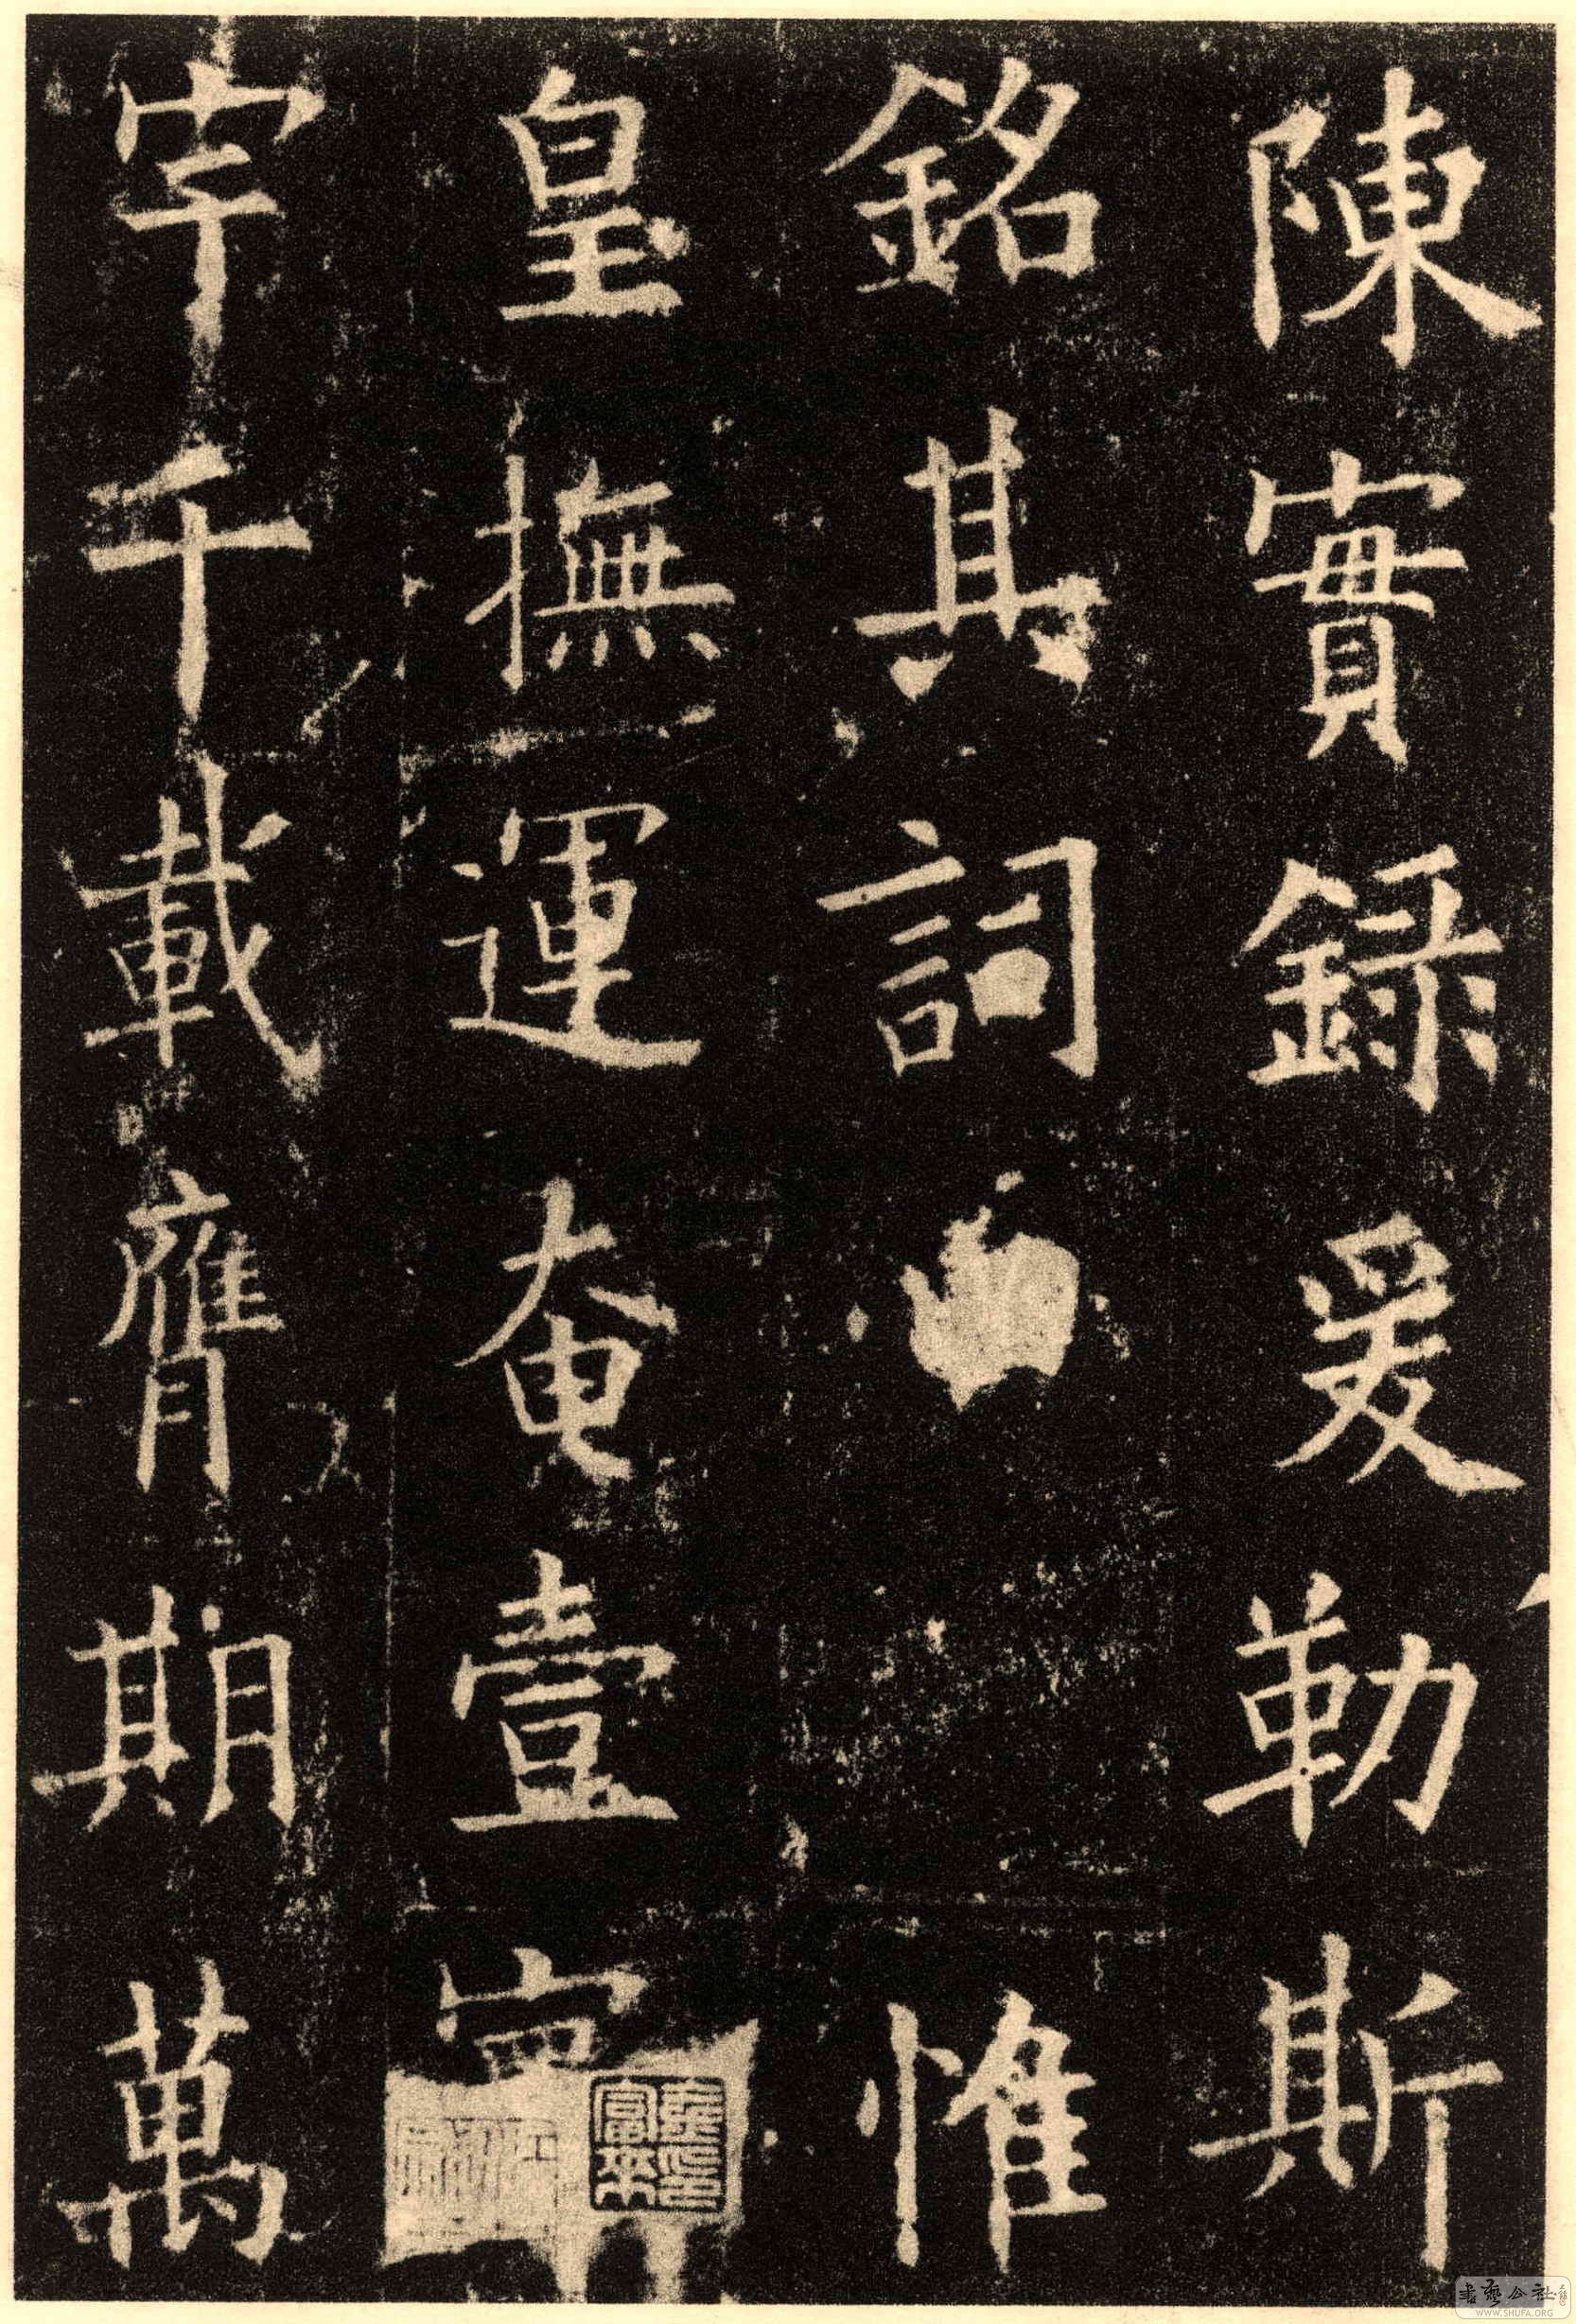 陳實錄爰勒斯
銘其詞曰惟
皇撫運奄壹寰
宇千載膺期萬
書藝公社
WWW.SHUFA.ORG